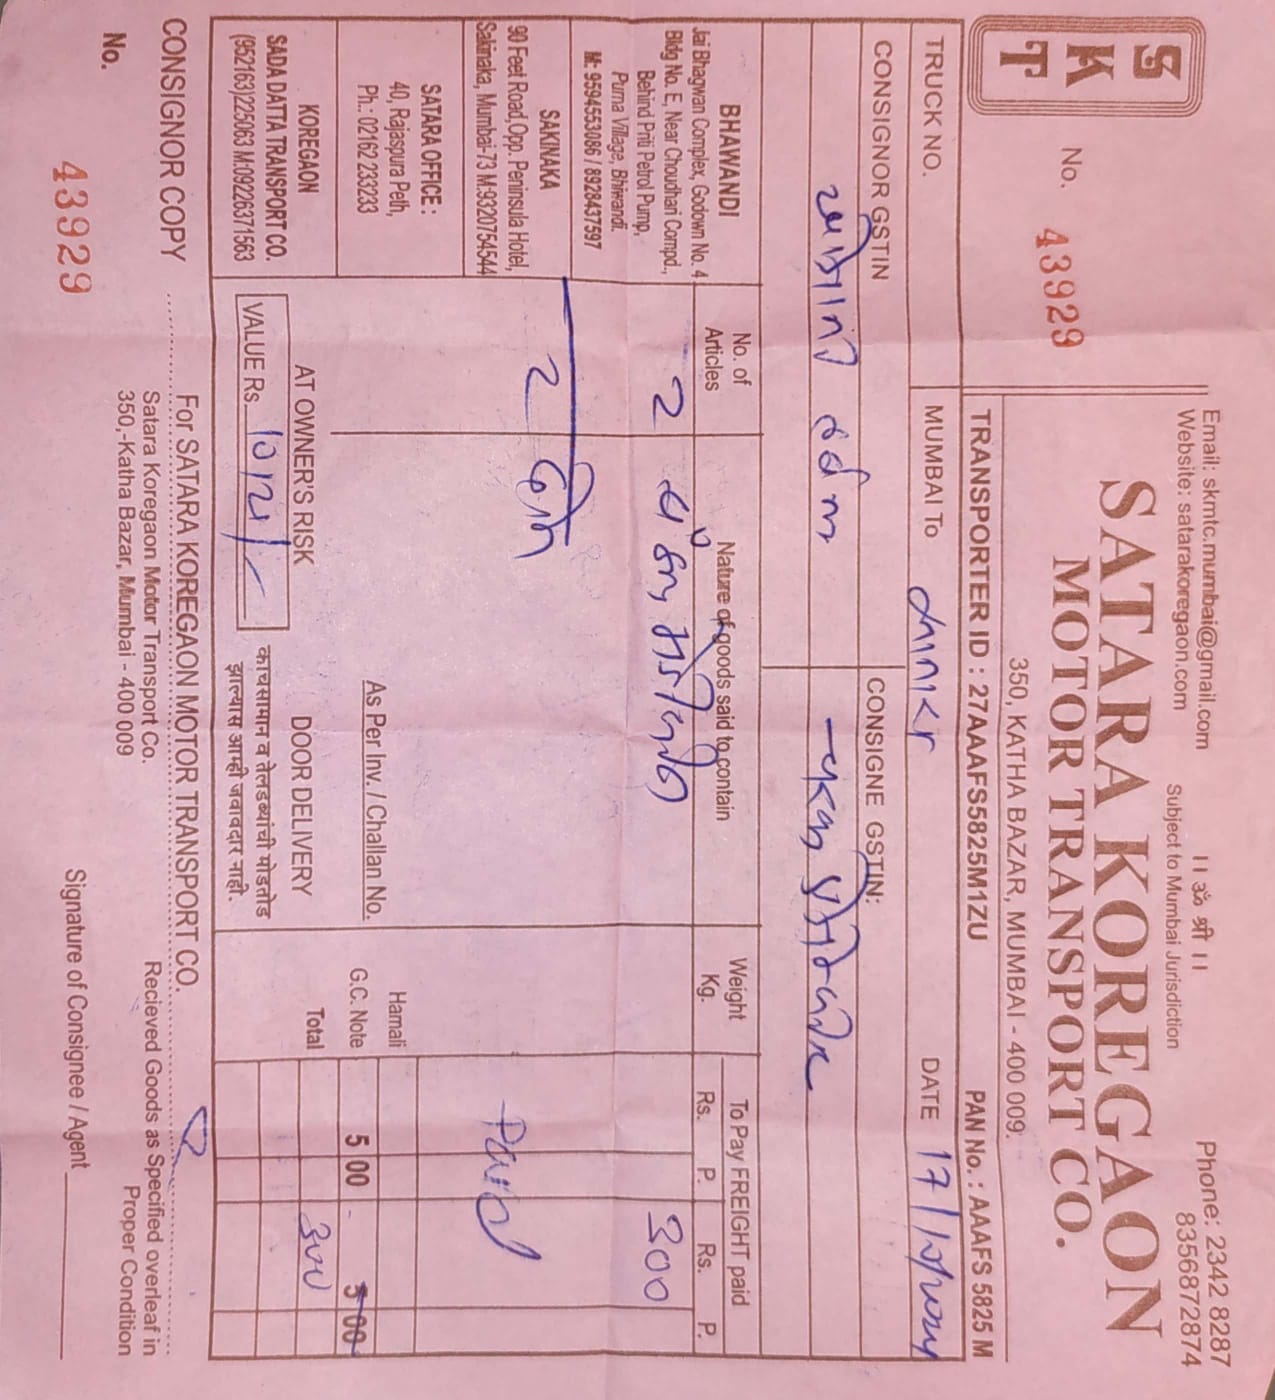 Email: skmtc.mumbai@gmail.com
Website: satarakoregaon.com
।। ॐ श्री ।।
Subject to Mumbai Jurisdiction
Phone: 2342 8287
8356872874
S
K
T
No. 43929
SATARA KOREGAON
MOTOR TRANSPORT CO.
350, KATHA BAZAR, MUMBAI - 400 009.
TRANSPORTER ID : 27AAAFS5825M1ZU PAN No. : AAAFS 5825 M
TRUCK NO. MUMBAI To DATE 17/
CONSIGNOR GSTIN CONSIGNE GSTIN:
BHAWANDI
Jai Bhagwan Complex, Godown No. 4
Bldg No. E, Near Choudhari Compd.,
Behind Priti Petrol Pump,
Purna Village, Bhiwandi.
M: 9594553086 / 8928437597
SAKINAKA
90 Feet Road, Opp. Peninsula Hotel,
Sakinaka, Mumbai-73 M:9320754544
SATARA OFFICE :
40, Rajaspura Peth,
Ph.: 02162 233233
KOREGAON
SADA DATTA TRANSPORT CO.
(952163)225063 M:09226371563
No. of
Articles
Nature of goods said to contain
Weight
Kg.
To Pay FREIGHT paid
Rs. P. Rs. P.
2
300
2
Paid
As Per Inv. / Challan No.
Hamali
G.C. Note 5 00 - 5 00
Total 300
AT OWNER'S RISK
DOOR DELIVERY
VALUE Rs.
काचसामान व तेलडब्यांची मोडतोड
झाल्यास आम्ही जवाबदार नाही.
CONSIGNOR COPY
For SATARA KOREGAON MOTOR TRANSPORT CO.
Satara Koregaon Motor Transport Co.
350,-Katha Bazar, Mumbai - 400 009
Recieved Goods as Specified overleaf in
Proper Condition
No. 43929
Signature of Consignee / Agent